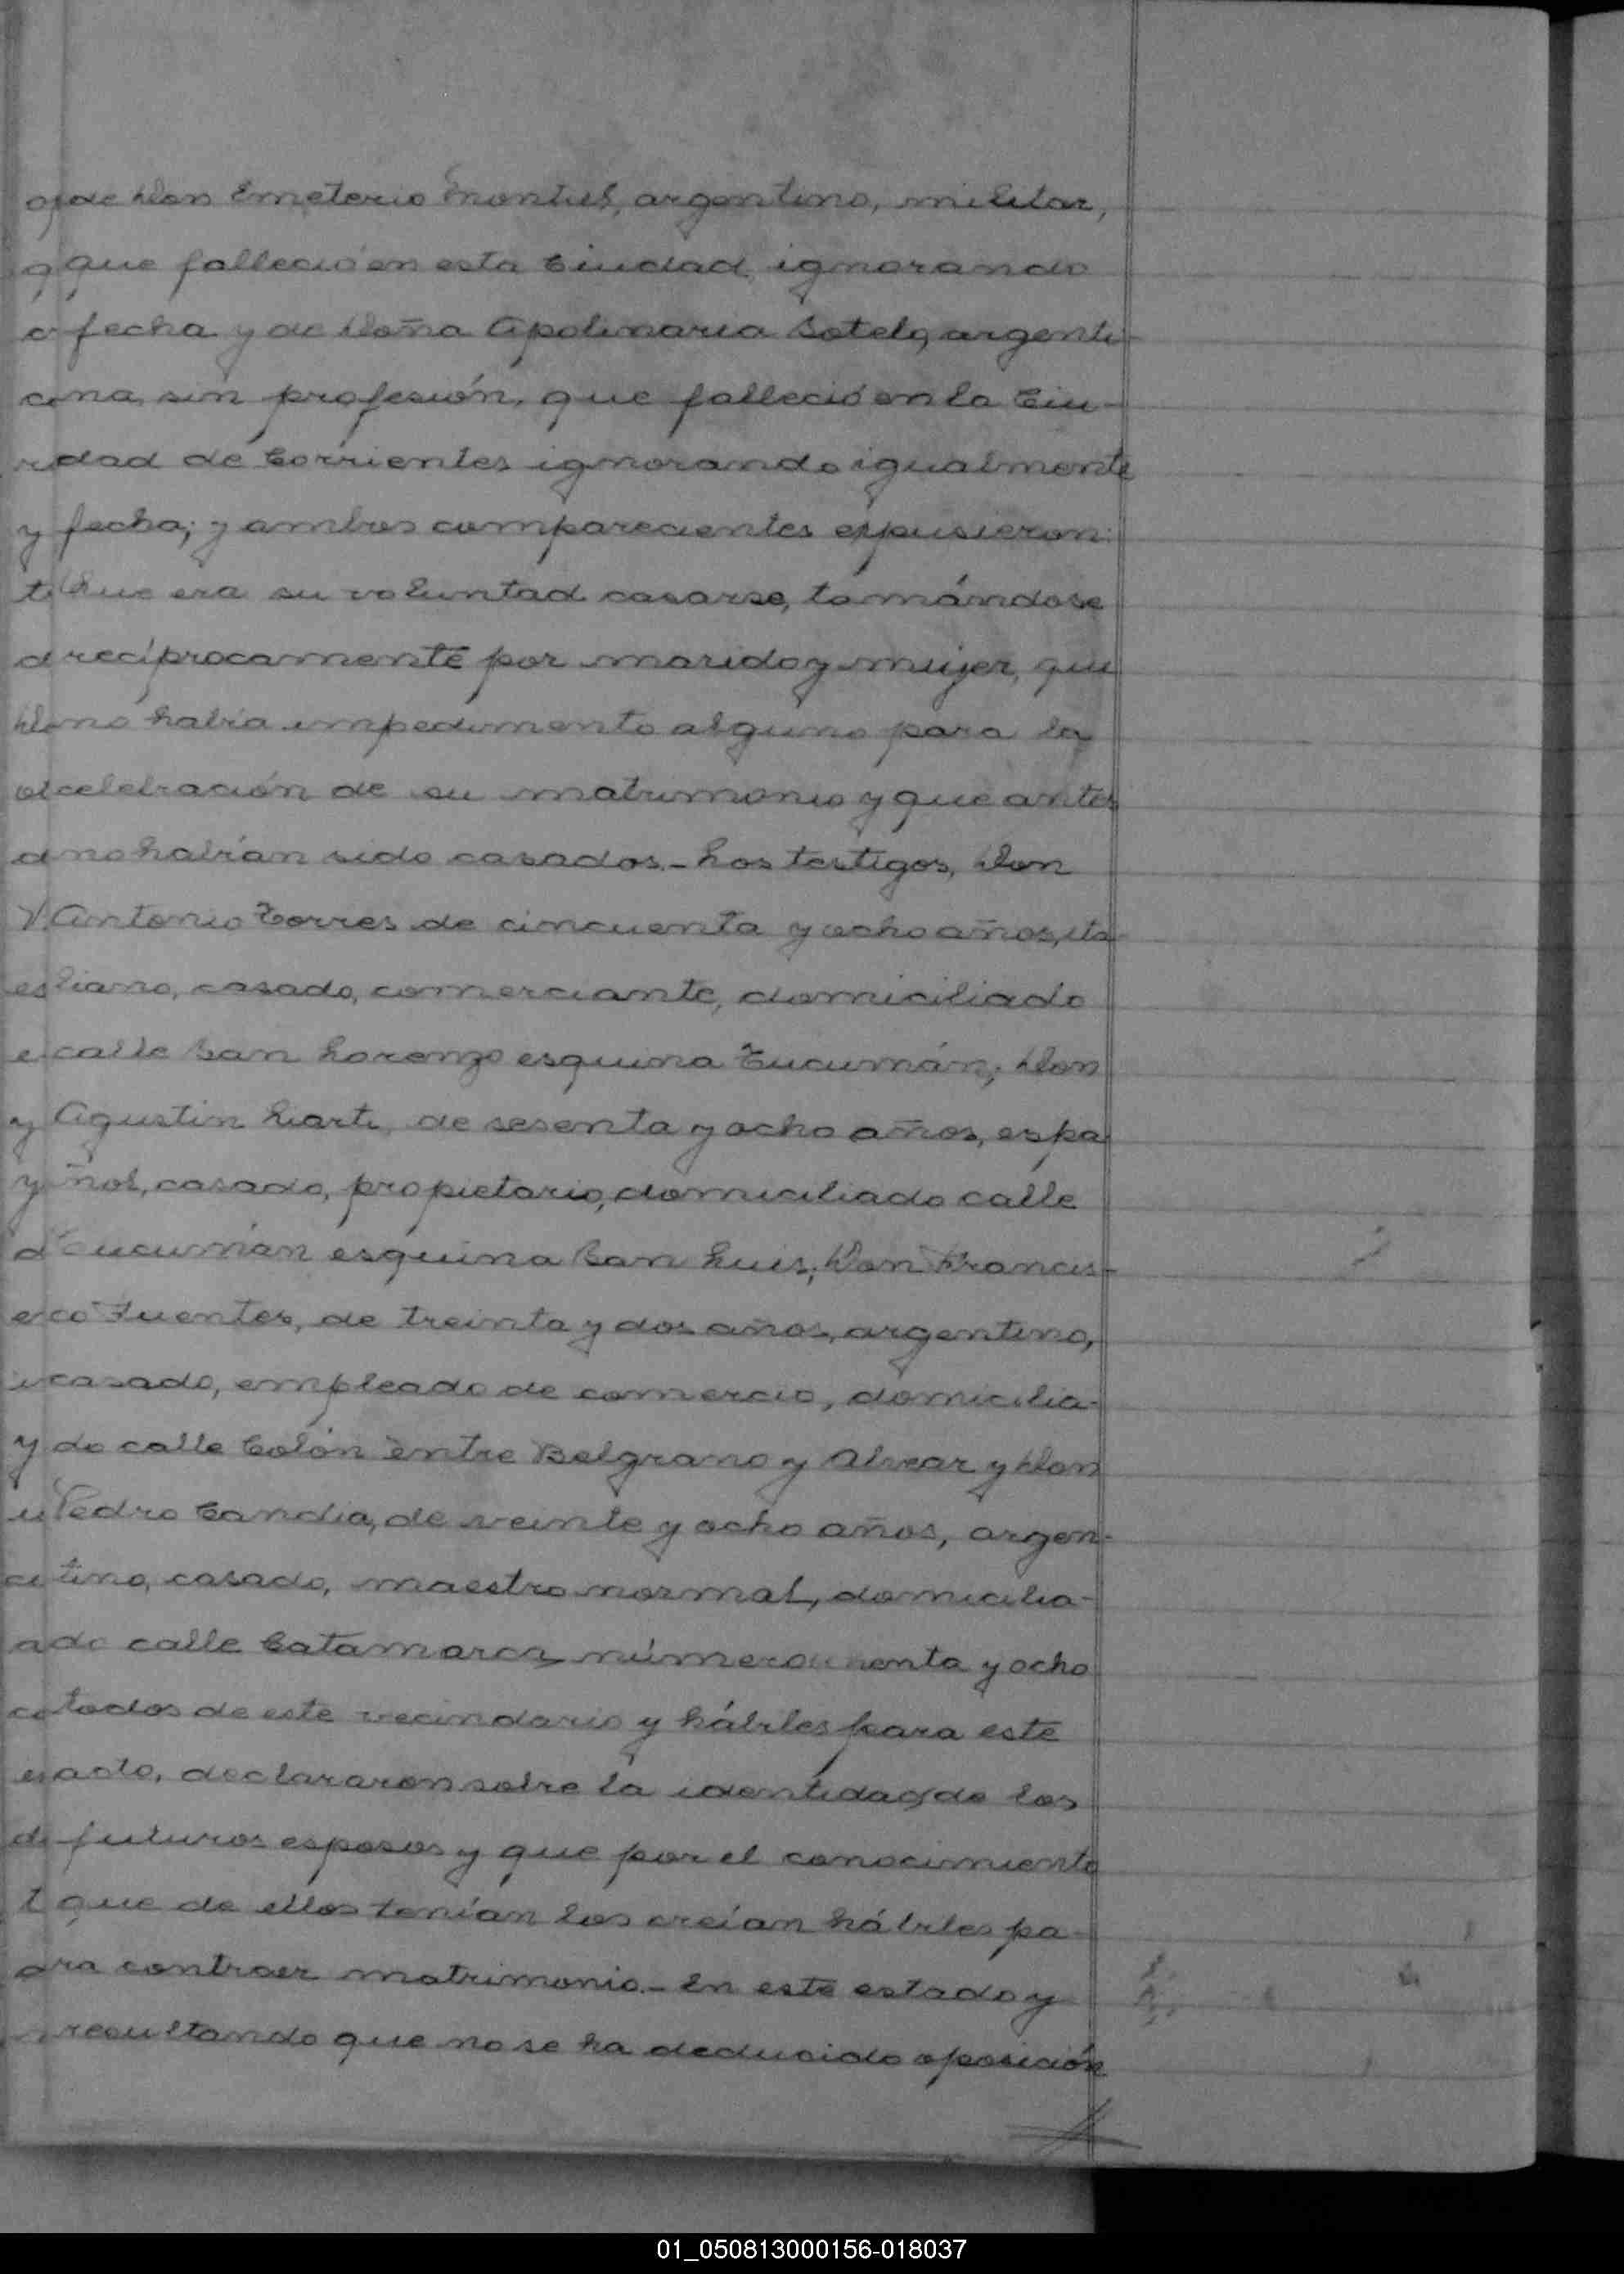 de Don Emeterio Montiel, argentino, militar,
que falleció en esta Ciudad, ignorando
fecha y de Doña Apolinaria Sotelo, argenti
na, sin profesión, que falleció en la Ciu-
dad de Corrientes ignorando igualmente
fecha; y ambos comparecientes expusieron:
Que era su voluntad casarse, tomándose
recíprocamente por marido y mujer, que
no había impedimento alguno para la
celebración de su matrimonio y que antes
no habían sido casados.- Los testigos, Don
Antonio Torres de cincuenta y ocho años, ita
liano, casado, comerciante, domiciliado
calle San Lorenzo esquina Tucumán; Don
Agustin de sesenta y ocho años, espa
ñol, casado, propietario, domiciliado calle
Tucumán esquina San Luis; Don Francis-
co Fuentes, de treinta y dos años, argentino,
casado, empleado de comercio, domicilia-
do calle Colón entre Belgrano y Alvear y Don
Pedro Candia, de veinte y ocho años, argen-
tino, casado, maestro normal, domicilia-
do calle Catamarca número y ocho
todos de este vecindario y hábiles para este
acto, declararon sobre la identidad de los
futuros esposos y que por el conocimiento
que de ellos tenían los creían hábiles pa-
ra contraer matrimonio.- En este estado y
resultando que no se ha deducido oposición
01_050813000156-018037